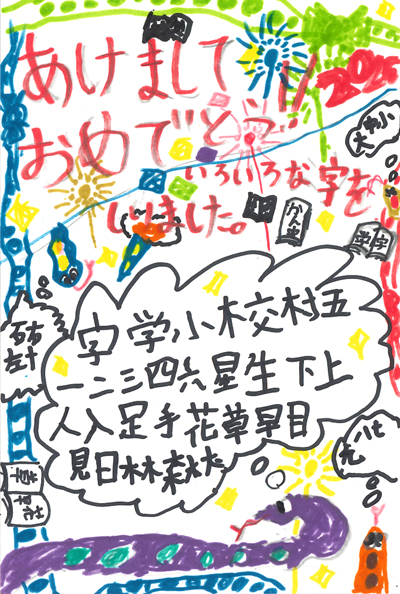 あけまして
おめでとう!!
2025
いろいろな字を
いました。
字学小木校村五
一二三四六星生下上
人入足手花草早目
見日林森犬